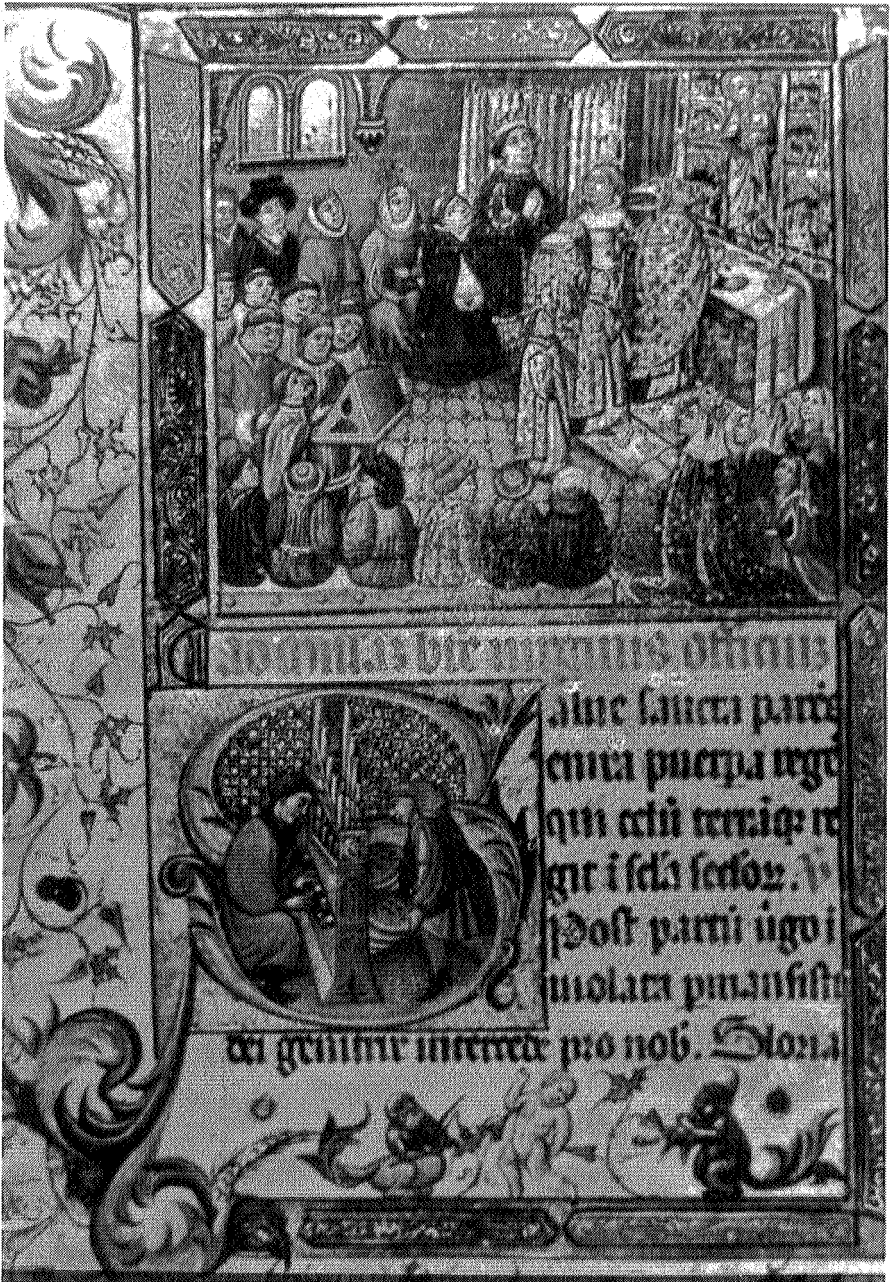 ad missas bte virginis officium
alue sancta parēs
enixa puerpa regē
qui celū terrāq; re
git i scla sclor. V
Post partū ūgo i
uiolata pmansisti
dei genitrix intercede pro nob. Gloria